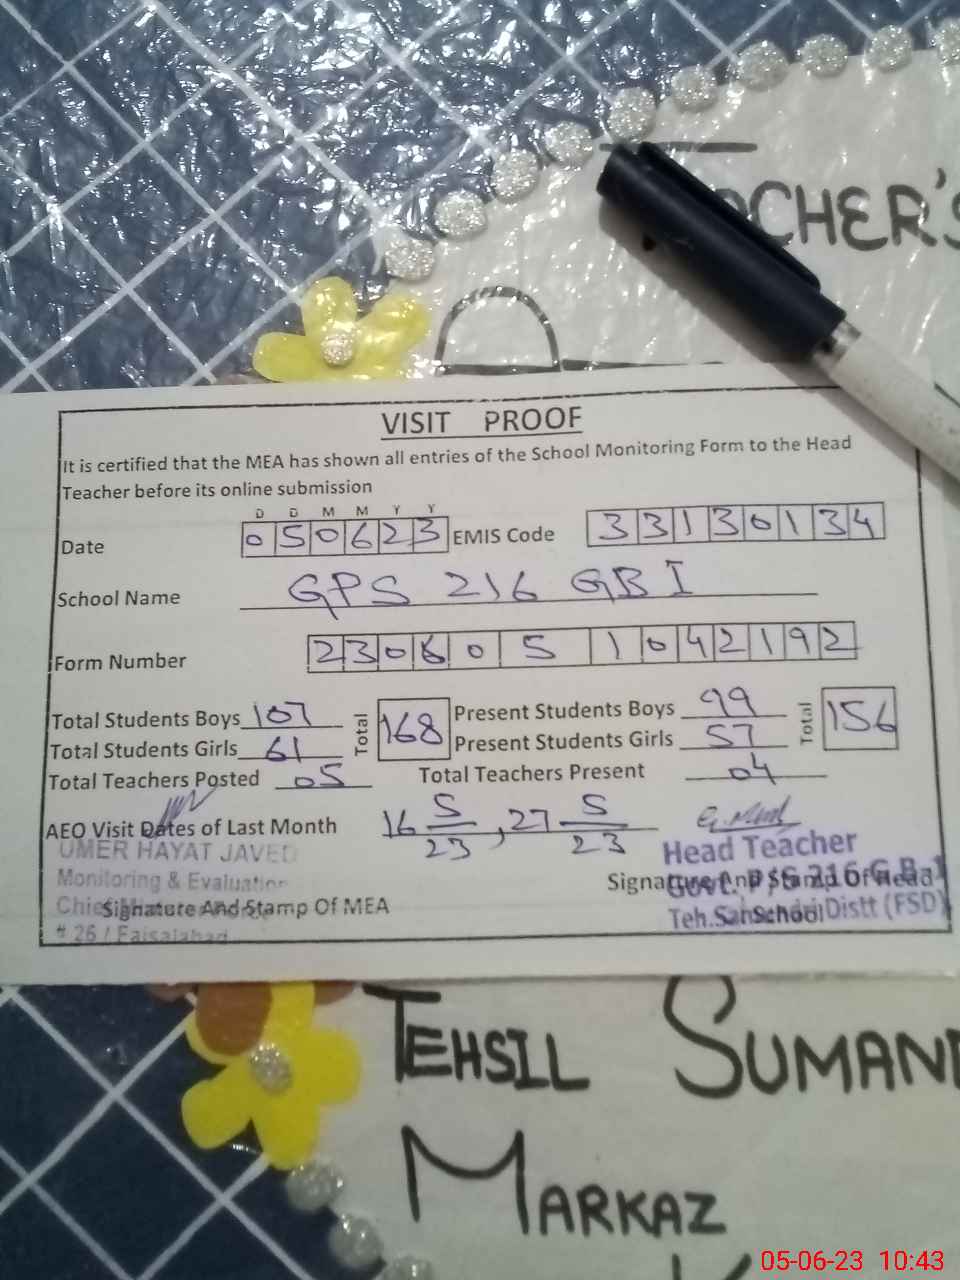 CHER'S
VISIT PROOF
It is certified that the MEA has shown all entries of the School Monitoring Form to the Head
Teacher before its online submission
D D M M Y Y
Date 0 5 0 6 2 3 EMIS Code 3 3 1 3 0 1 3 4
School Name GPS 216 GB I
Form Number 2 3 0 6 0 5 1 0 4 2 1 9 2
Total Students Boys 107 Total 168 Present Students Boys 99 Total 156
Total Students Girls 61 Present Students Girls 57
Total Teachers Posted 05 Total Teachers Present 04
AEO Visit Dates of Last Month 16 5/23, 27 5/23
UMER HAYAT JAVED
Monitoring & Evaluation
Signature And Stamp Of MEA
# 26 / Faisalabad
Head Teacher
Signature And Stamp Of Head
Govt. P/S 216 G.B-1
School
Teh. Distt (FSD)
TEHSIL SUMAND
MARKAZ
05-06-23 10:43